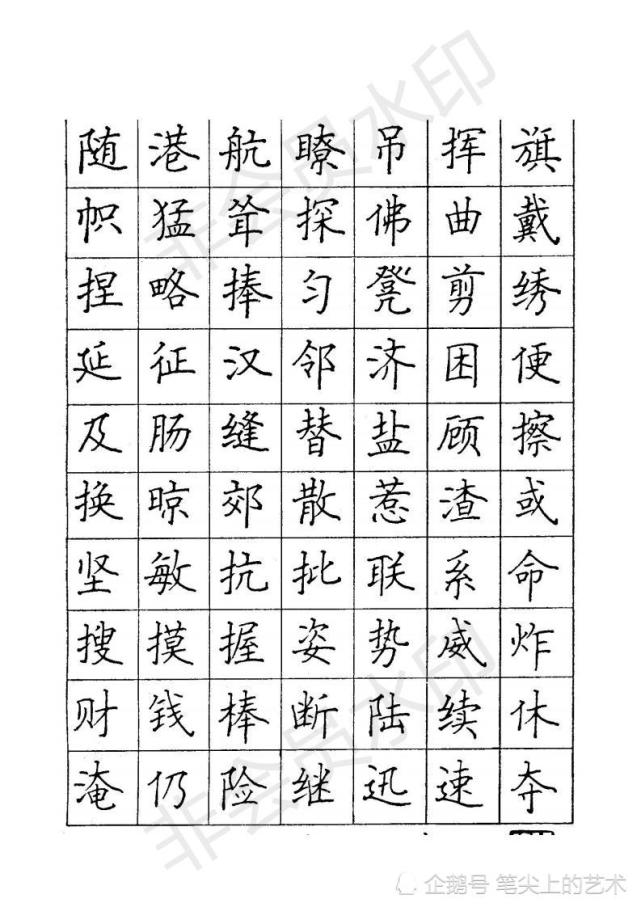 非会员水印
随 港 航 瞭 吊 挥 旗
帜 猛 耸 探 佛 曲 戴
捏 略 捧 匀 凳 剪 绣
延 征 汉 邻 济 困 便
及 肠 缝 替 盐 顾 擦
换 晾 郊 散 惹 渣 或
坚 敏 抗 批 联 系 命
搜 摸 握 姿 势 威 炸
财 钱 棒 断 陆 续 休
淹 仍 险 继 迅 速 夺
非会员水印
企鹅号 笔尖上的艺术